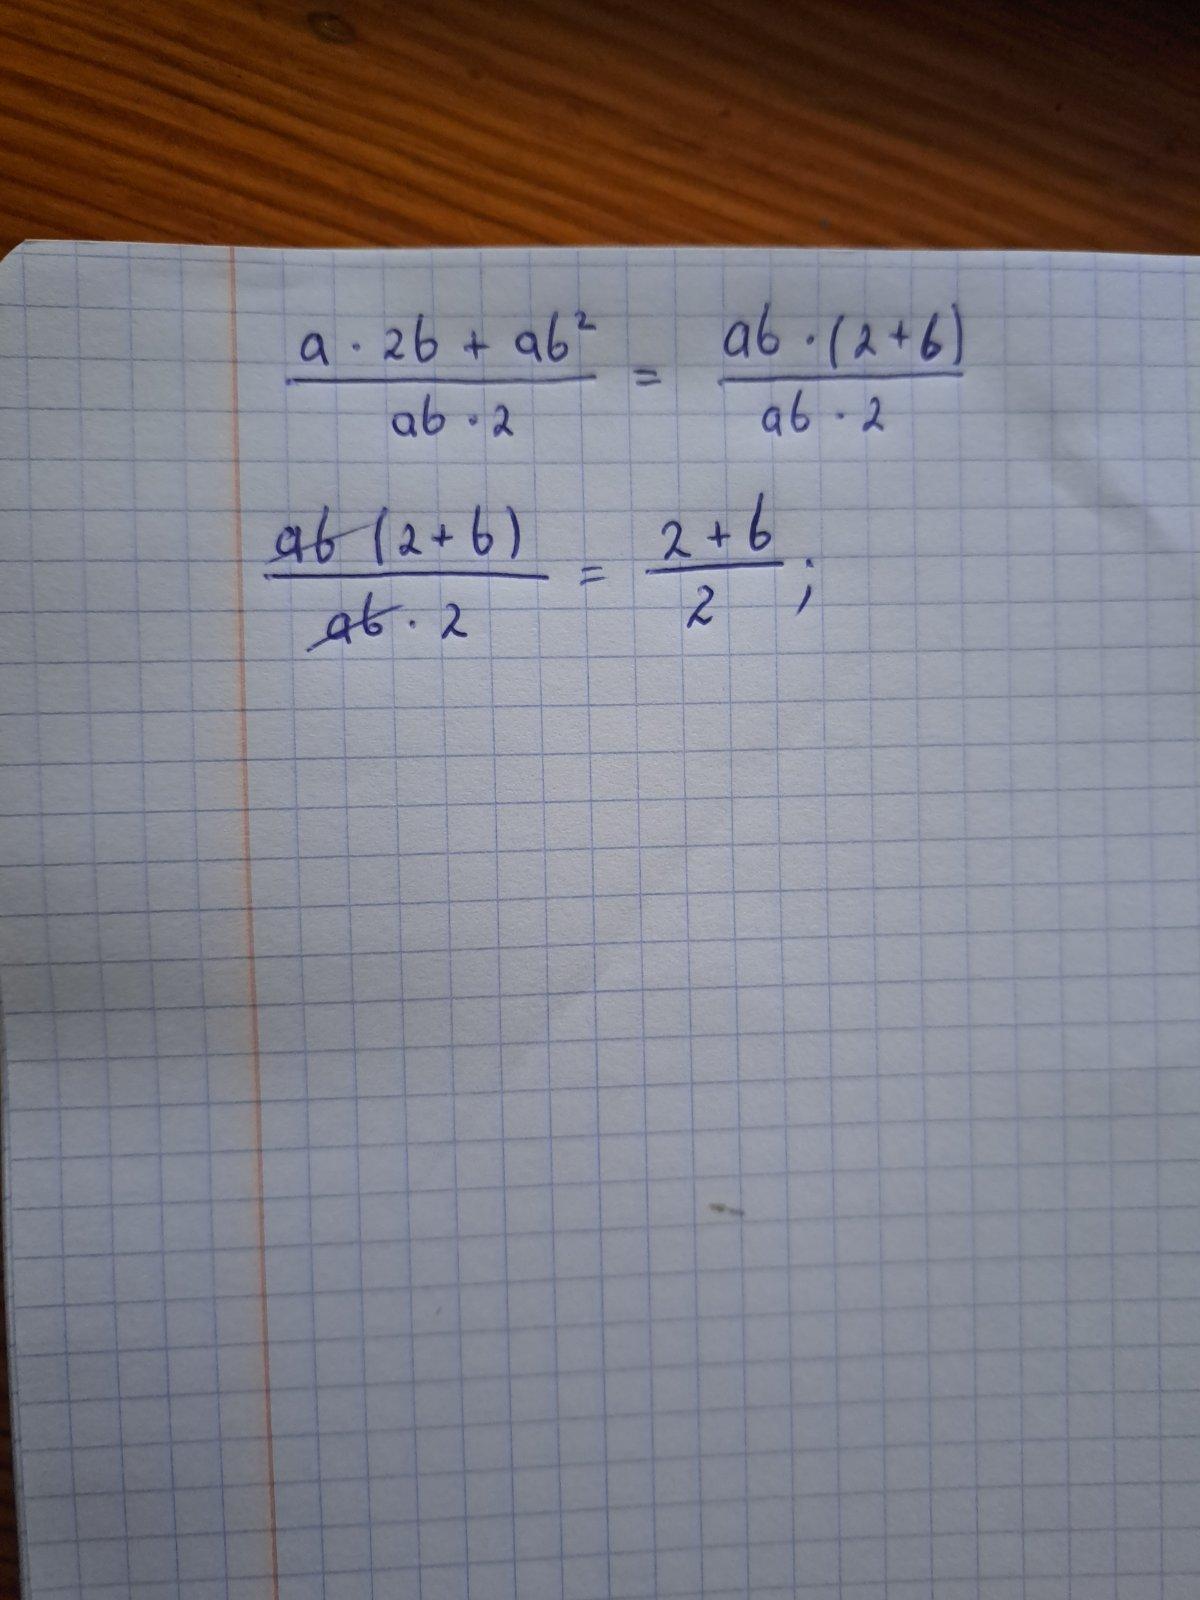 (a · 2b + ab²)/(ab · 2) = (ab · (2+b))/(ab · 2)
(ab (2+b))/(ab · 2) = (2+b)/2 ;